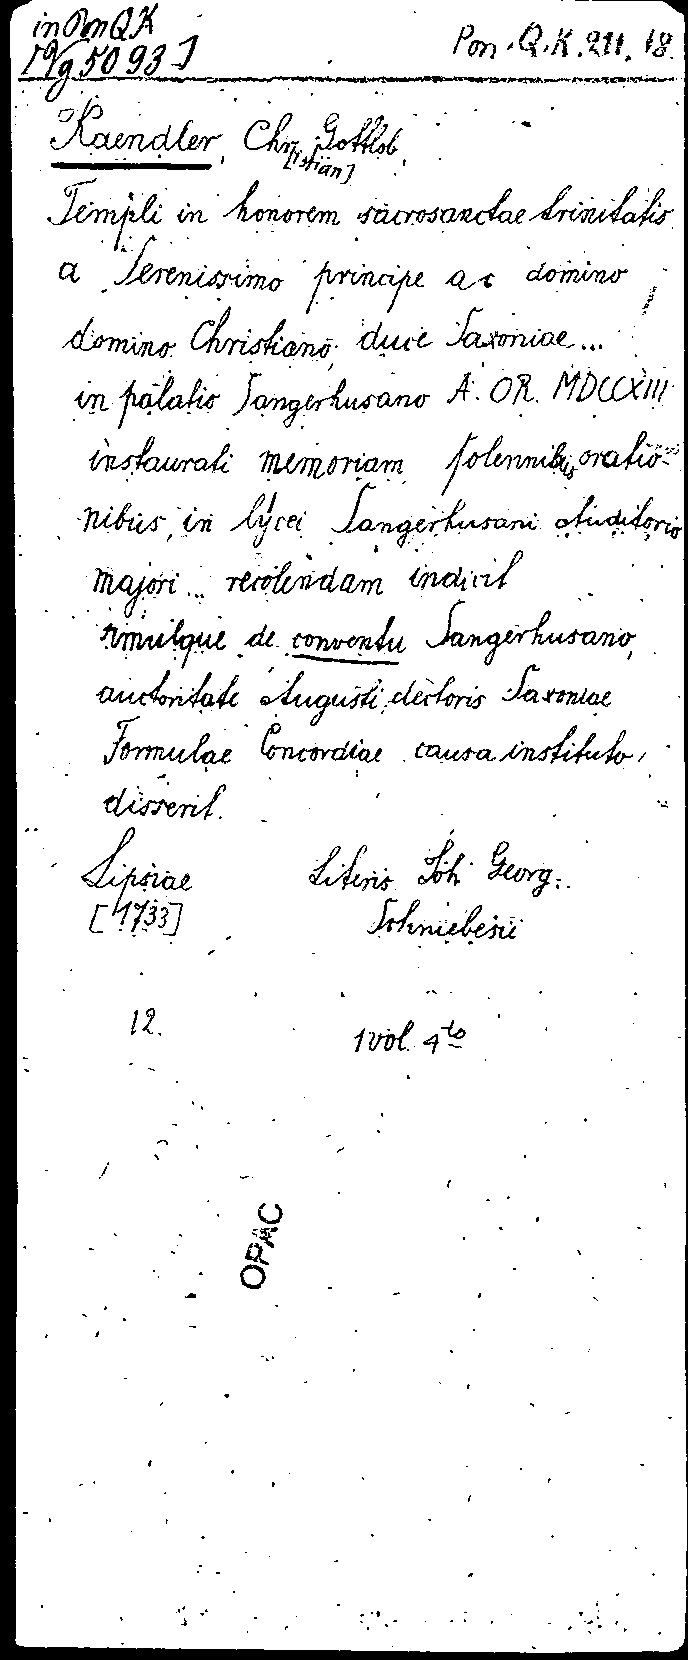 in Pon QK
[Vg 5093]
Pon. Q. K. 211, 18.
Kaendler, Chr[istian] Gottlob.
Templi in honorem sacrosanctae trinitatis
a Serenissimo principe ac domino
domino Christiano, duce Saxoniae...
in palatio Sangerhusano A. OR. MDCCXIII
instaurati memoriam solennibus oratio-
nibus, in lycei Sangerhusani Auditorio
majori... recolendam indicit
simulque de conventu Sangerhusano,
auctoritate Augusti, electoris Saxoniae
Formulae Concordiae causa instituto,
disserit.
Lipsiae Literis Joh. Georg.
[1733] Schniebesii
12. 1 vol. 4to
OPAC